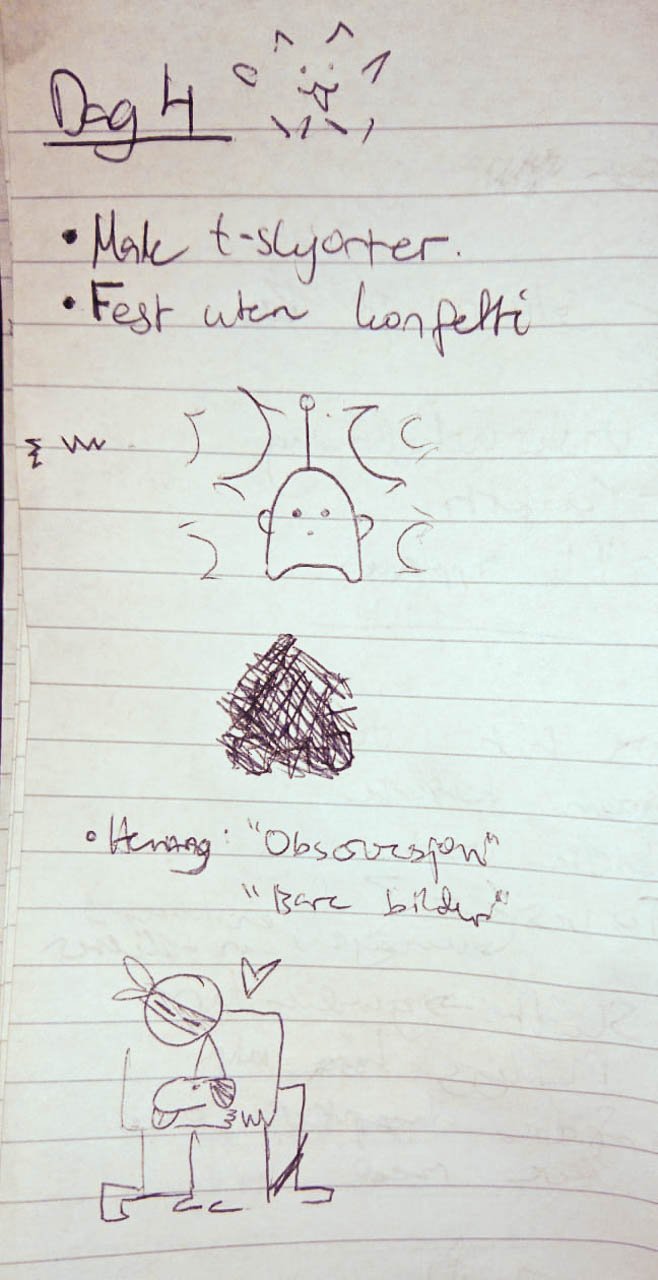 Dag 4
• Male t-skjorter.
• Fest uten konfetti
"Bare bilder"